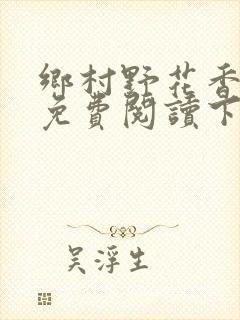 鄉村野花香
免費閱讀下
吳浮生